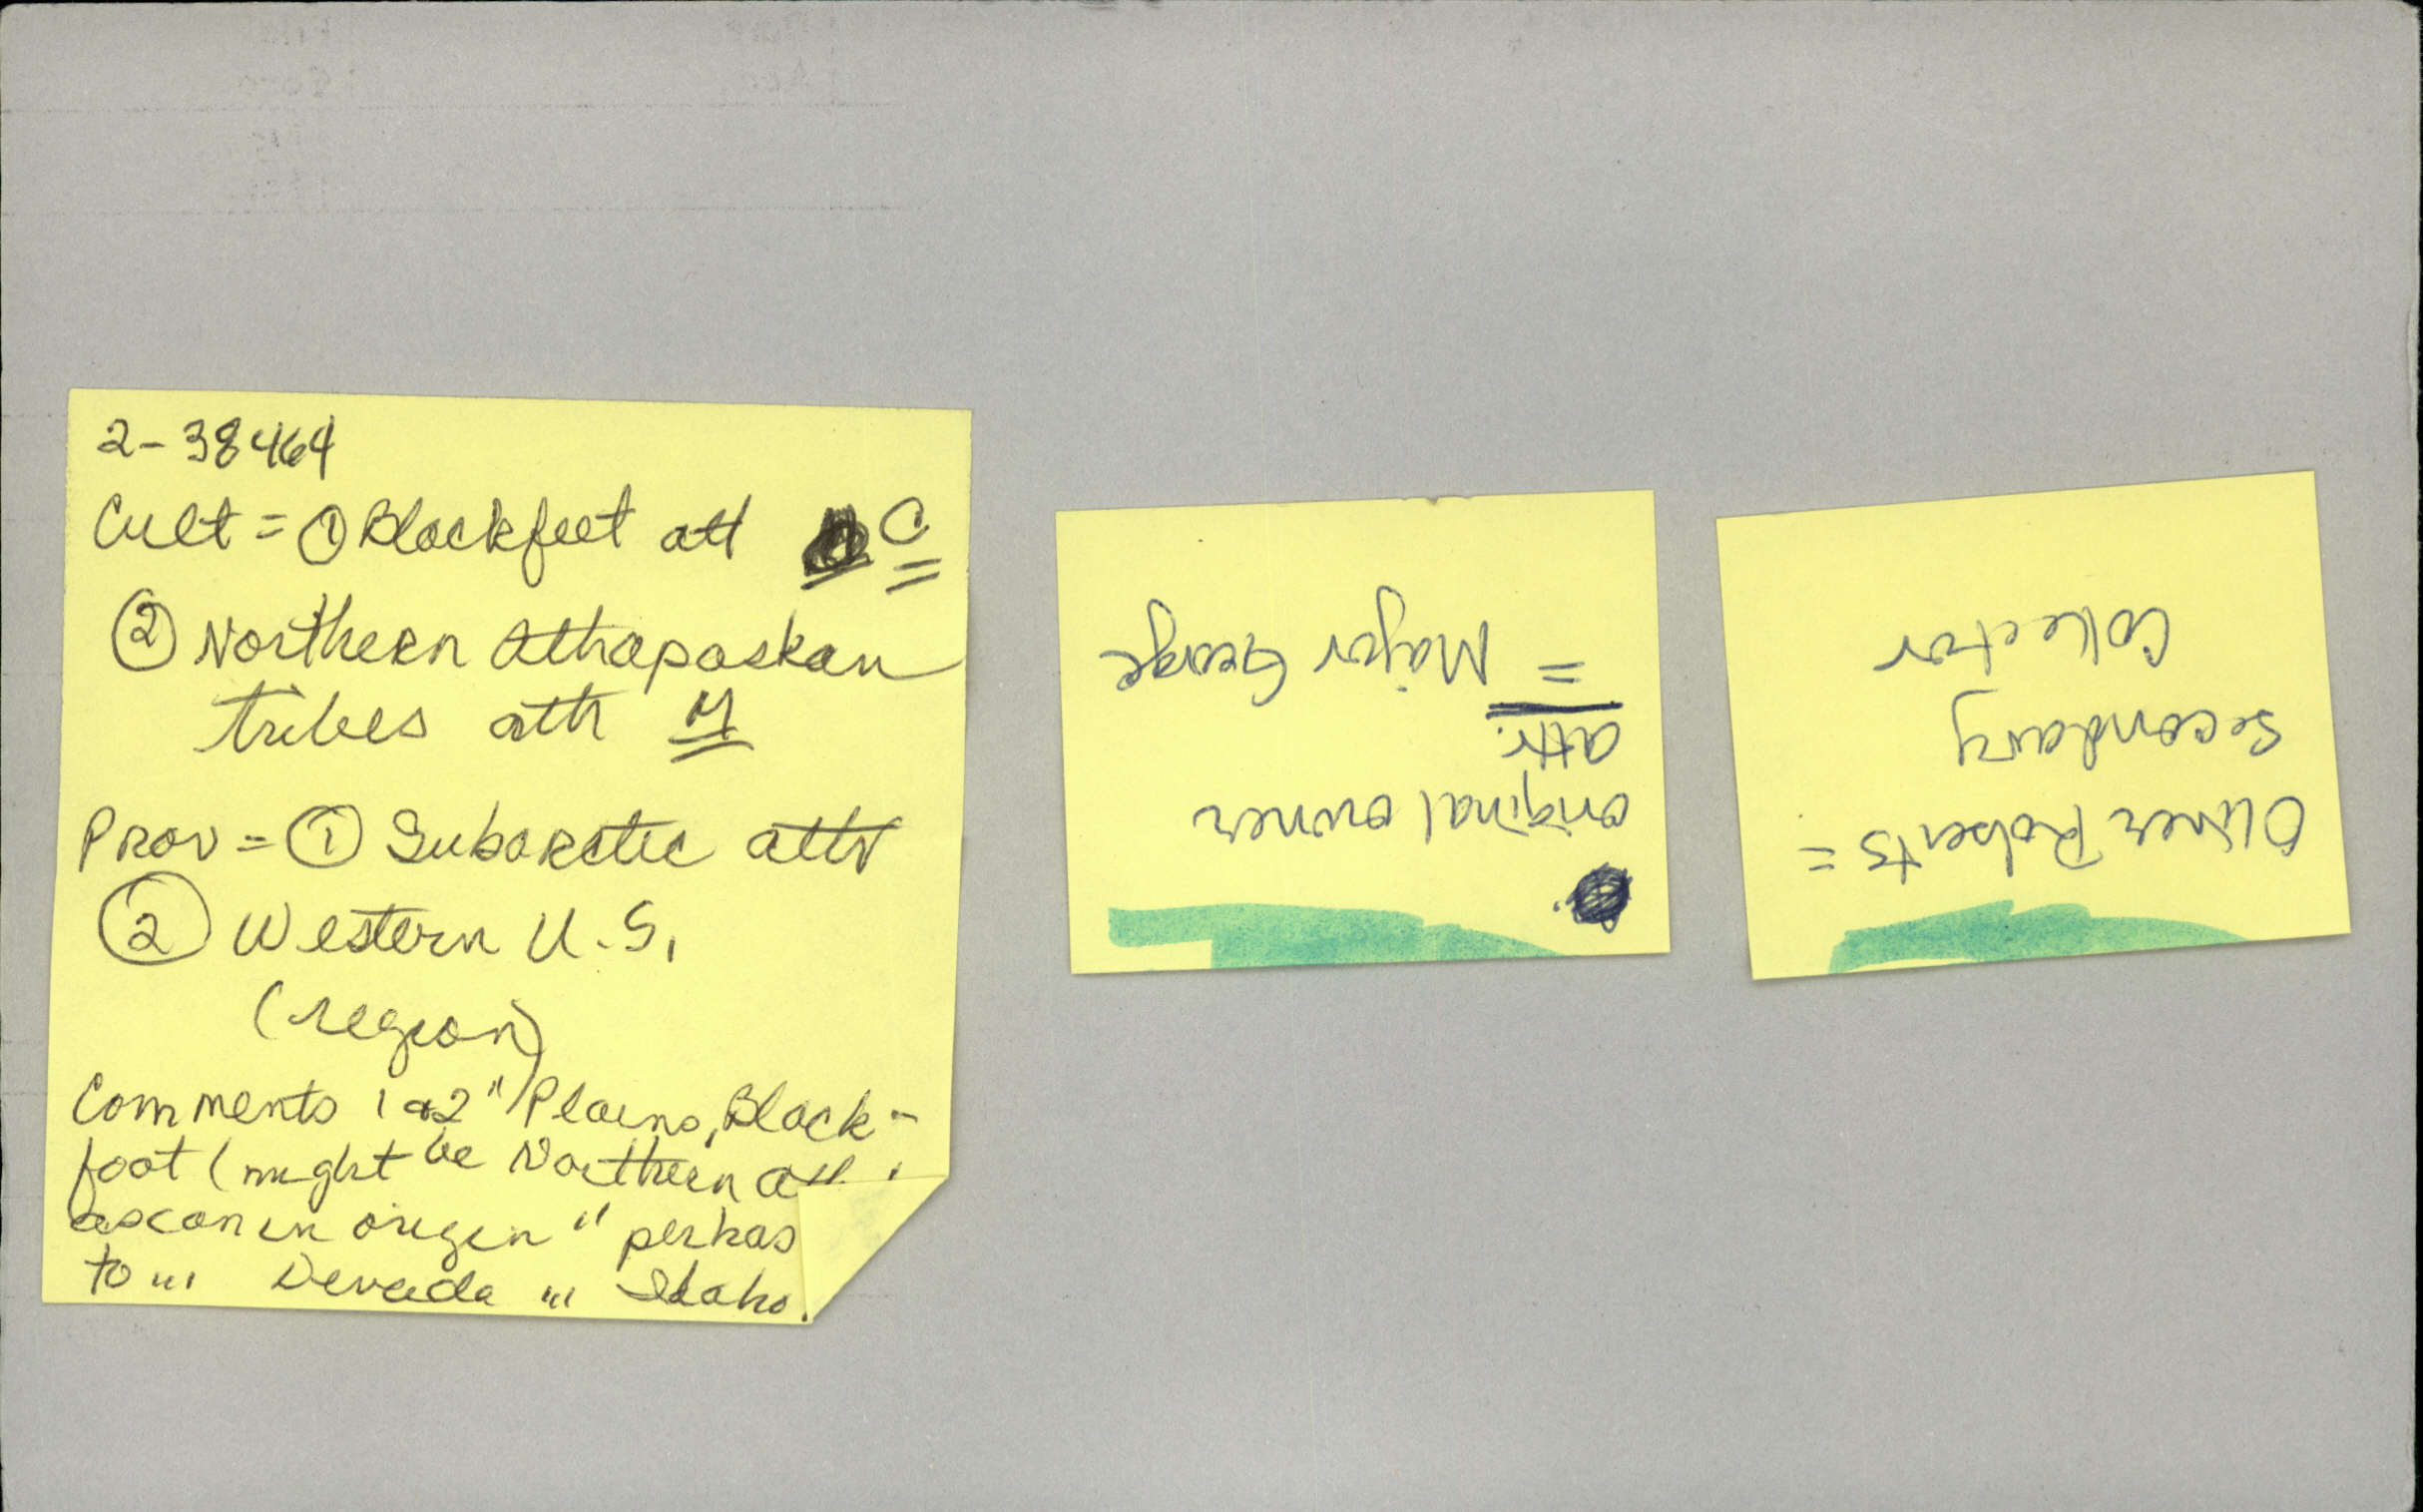 2-38464
Cult = ① Blackfeet att C
② Northern Athapaskan
tribes attr M
Prov = ① Subarctic attr
② Western U.S.
(region)
Comments 1 & 2 "Plains, Black-
foot (might be Northern Ath
ascan in origin" perhas
to "" Devada "" Idaho.
original owner
attr.
= Major George
Oliver Roberts =
Secondary
Collector